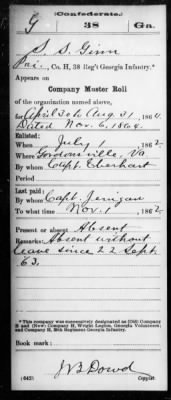 (Confederate.)
G 38 Ga.
S. S. Ginn
Pri., Co. H, 38 Reg't Georgia Infantry.*
Appears on
Company Muster Roll
of the organization named above,
for April 30 to Aug. 31, 1864.
Dated Nov. 6, 1864.
Enlisted:
When July 1, 1862.
Where Gordonsville, Va
By whom Capt. Eberhart
Period
Last paid:
By whom Capt. Jernigan
To what time Nov. 1, 1862.
Present or absent Absent
Remarks: Absent without
leave since 22 Sept.
63.
*This company was successively designated as (Old) Company
H and (New) Company H, Wright Legion, Georgia Volunteers;
and Company H, 38th Regiment Georgia Infantry.
Book mark:
J B Dowd
(642) Copyist.